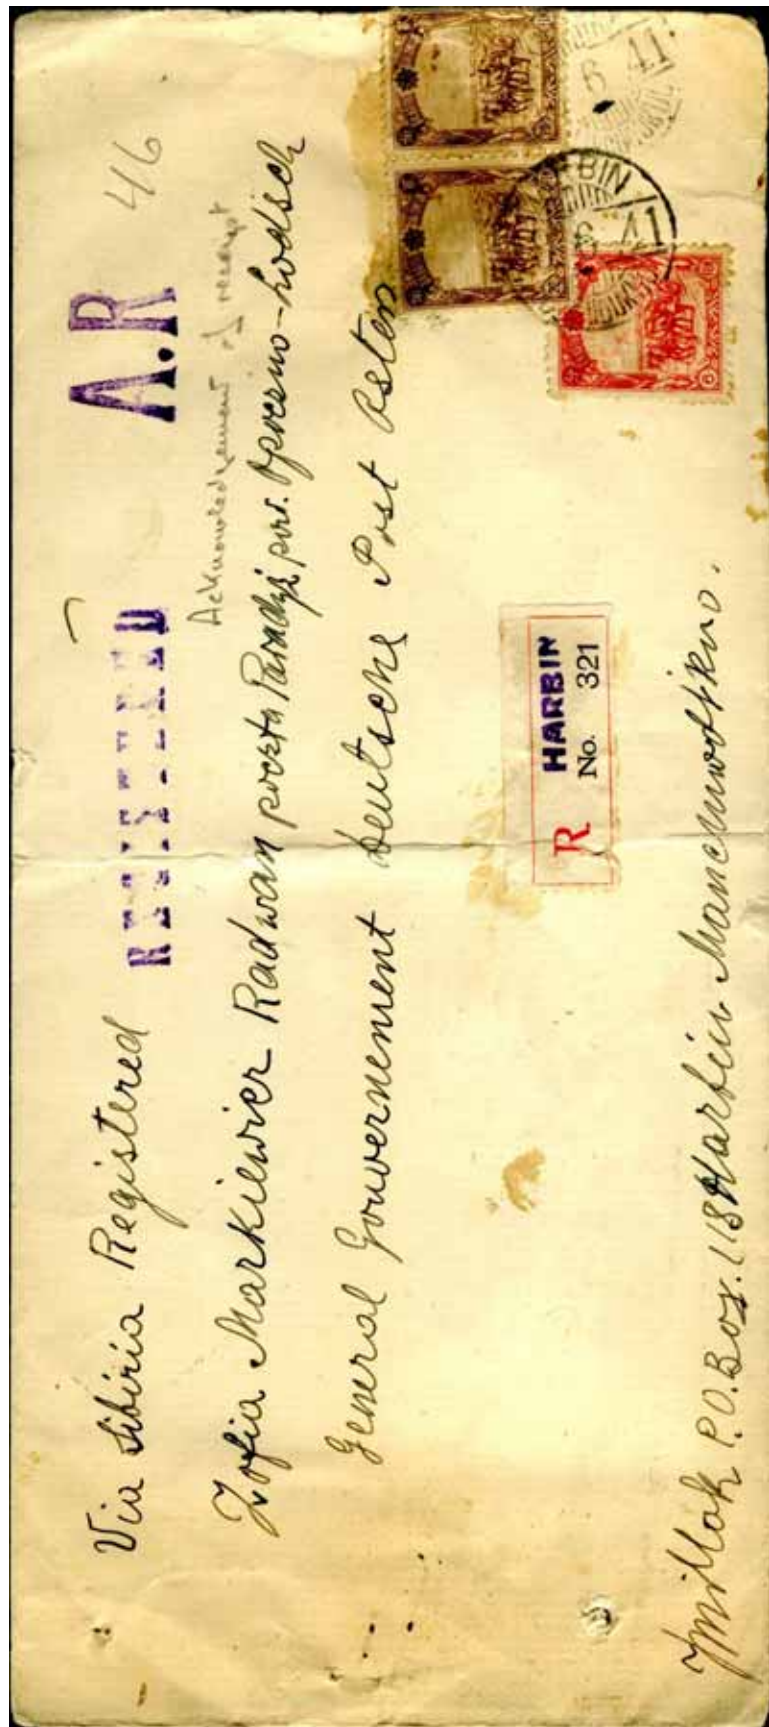 Via Sibiria Registered
REGISTERED
A.R
46
Acknowledgement of receipt
Zofia Markiewicz Radwan poczta Paradyż pow. Opoczno-Lodsch
General Gouvernement Deutsche Post Osten
R HARBIN
No. 321
P.O. Box. 118 Harbin Manchoutikuo.
BIN
6 41
41